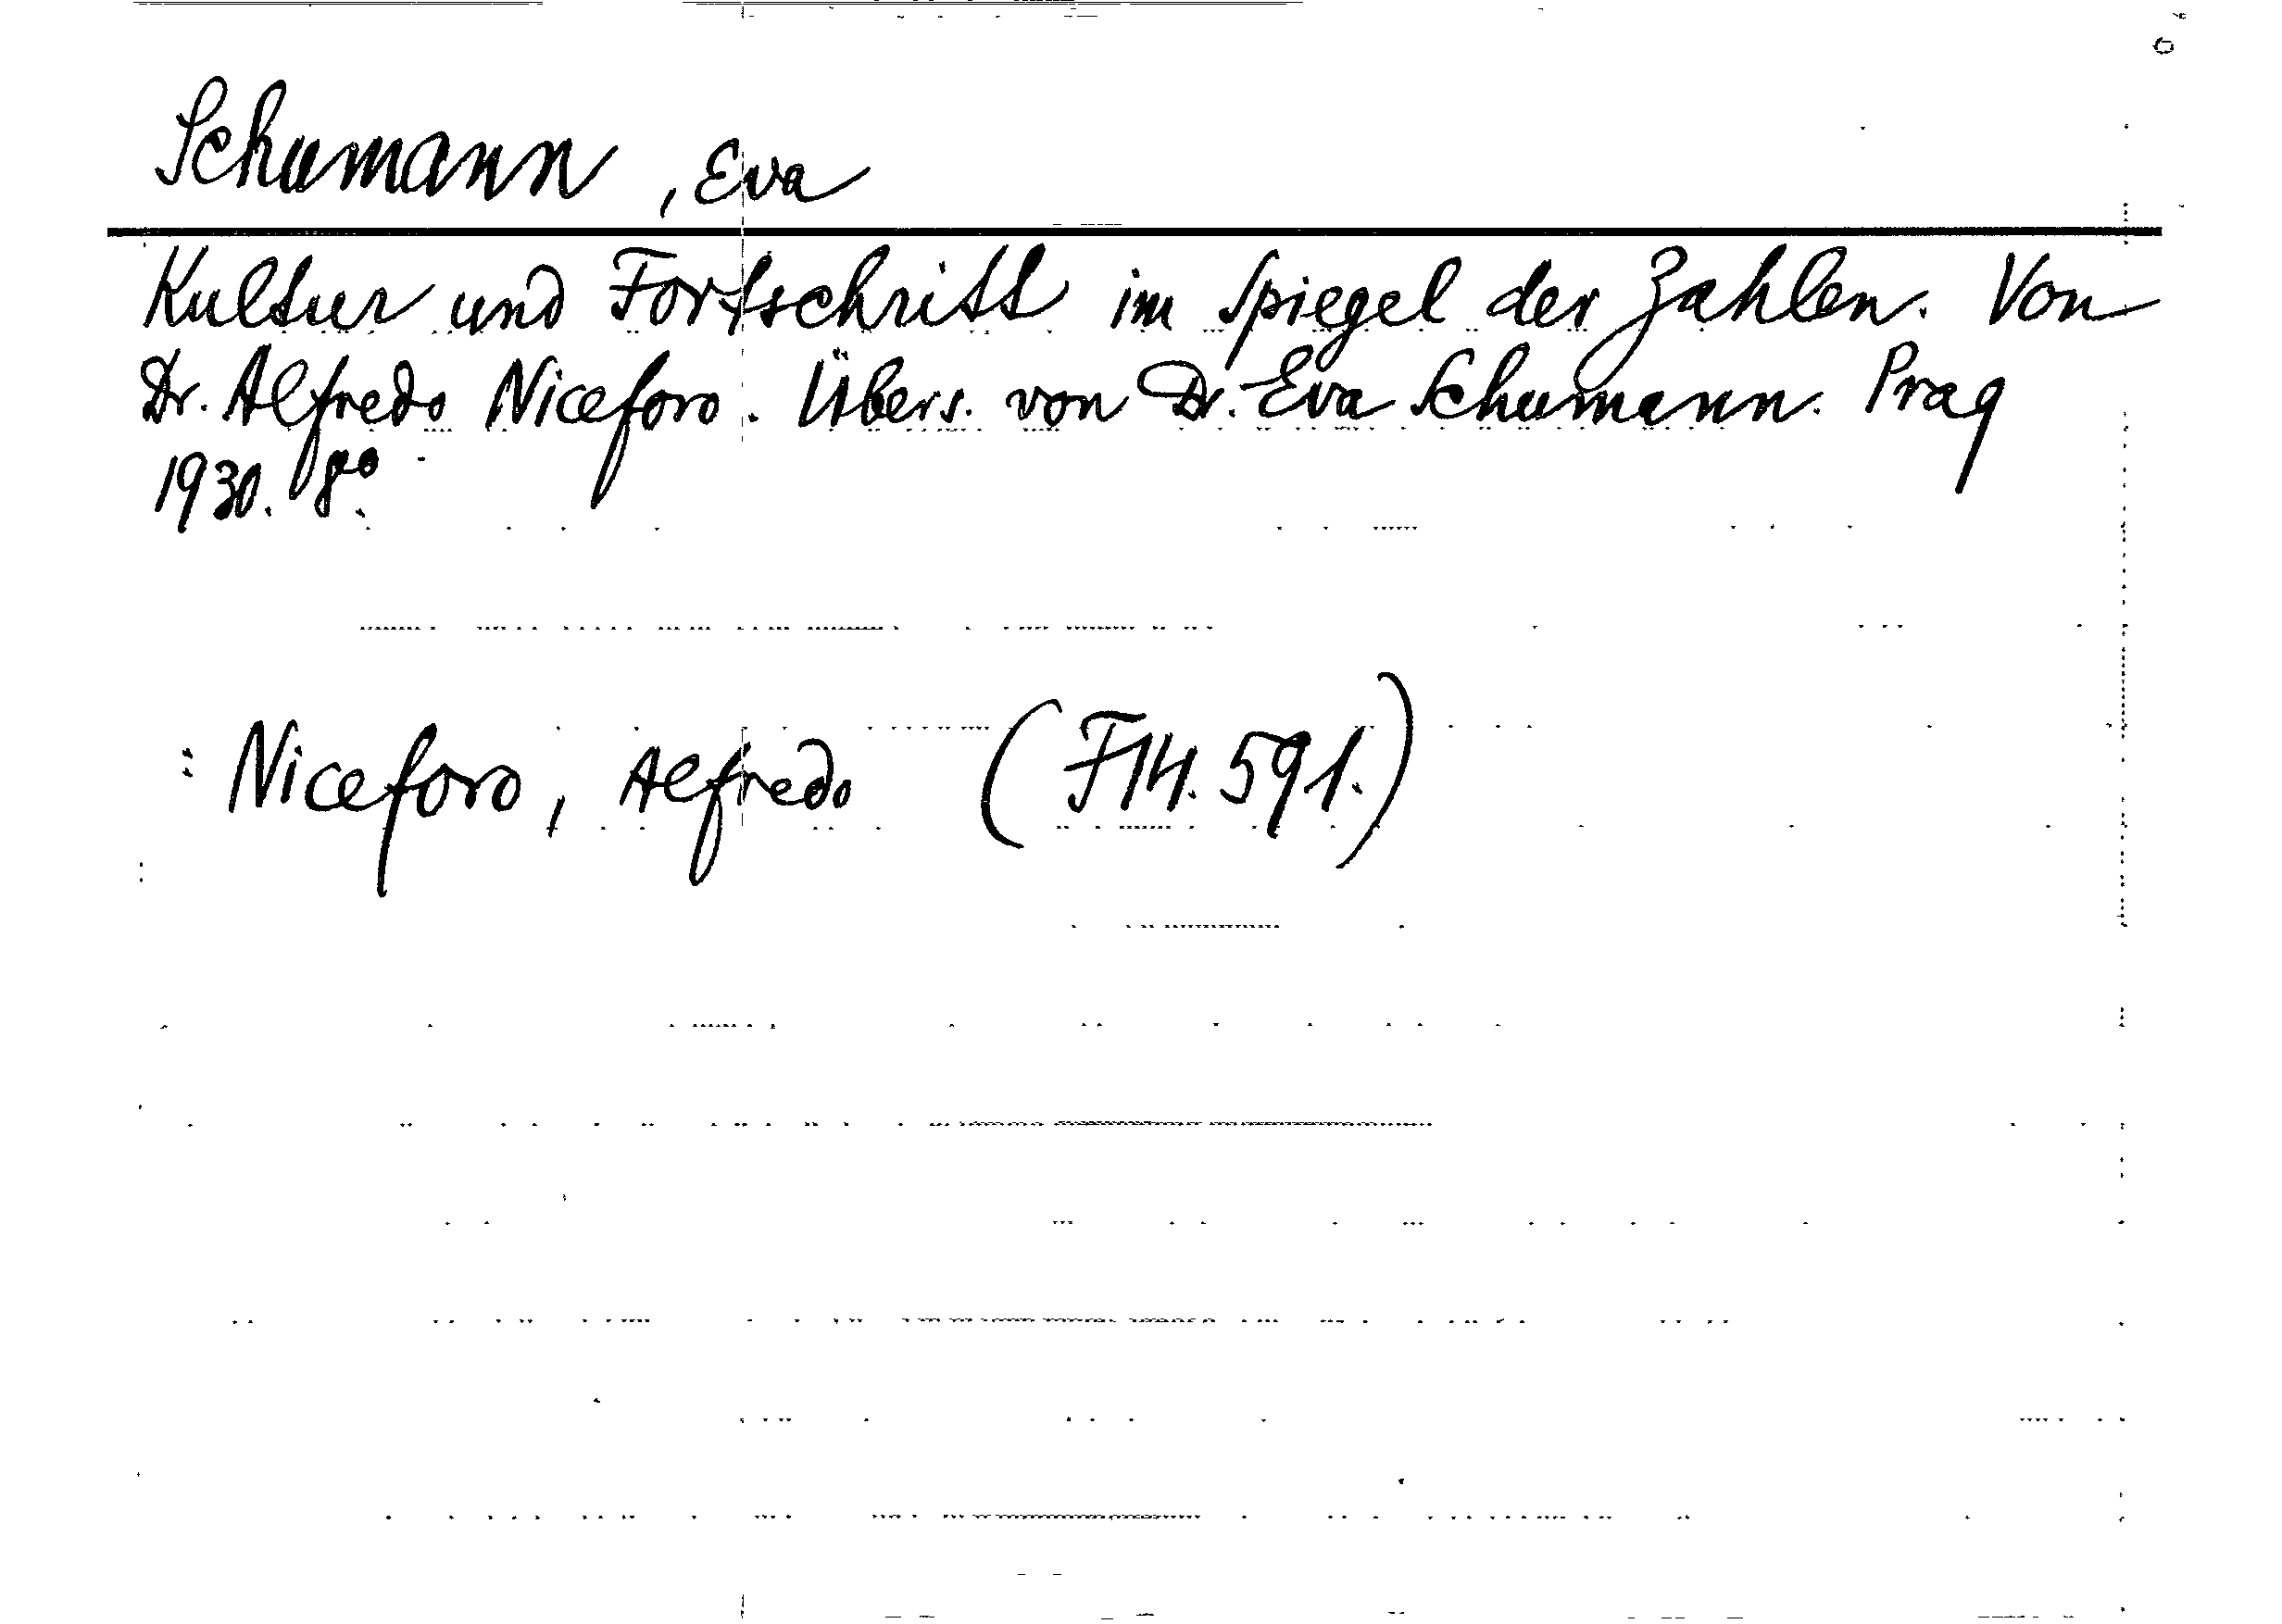 Schumann, Eva
Kultur und Fortschritt im Spiegel der Zahlen. Von
Dr. Alfredo Niceforo. Übers. von Dr. Eva Schumann. Prag
1930. 8°.
: Niceforo, Alfredo (F14.591.)